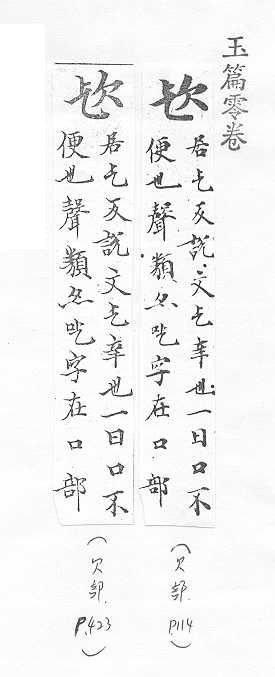 玉篇零卷
居乞反說文乞幸也一曰口不
便也聲類亦吃字在口部
(欠部. P.114)
居乞反說文乞幸也一曰口不
便也聲類亦吃字在口部
(欠部. P.423)